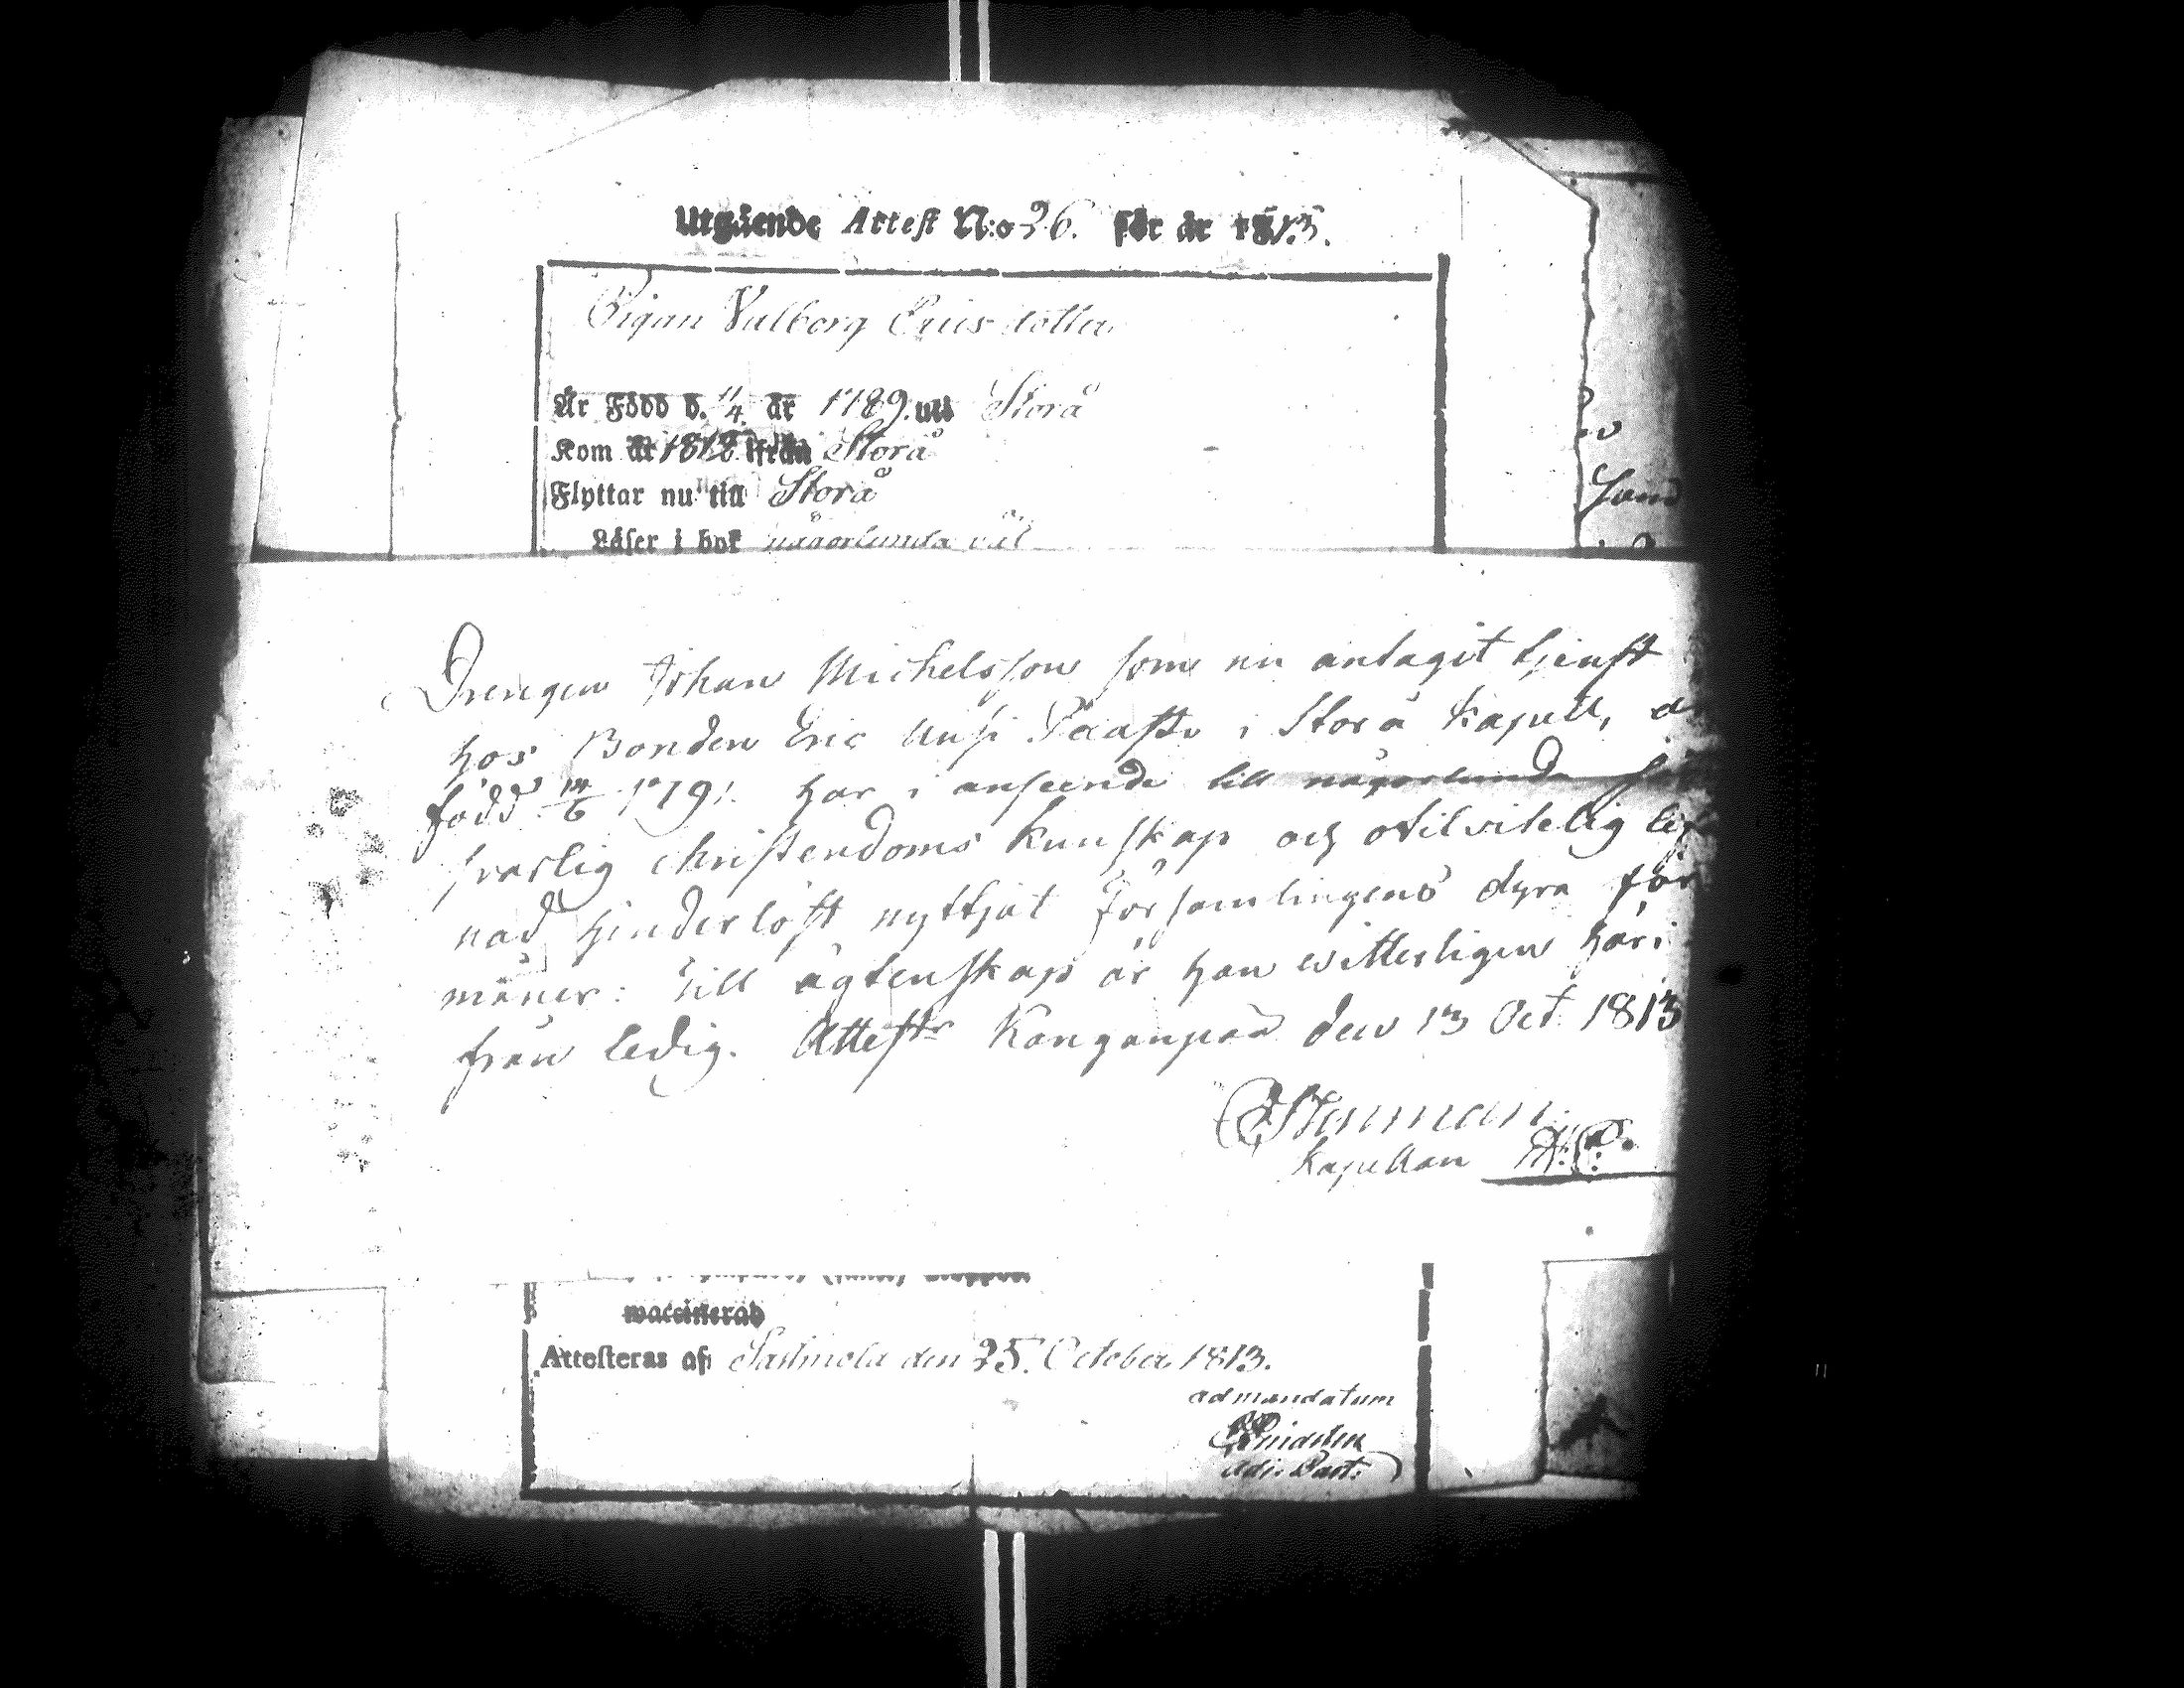 Utgående Attest N:o 26. för år 1813.
Pigan Valborg Erics dotter
Är Född d. 11/4 år 1789. uti Storå
Kom år 1812 ifrån Storå
Flyttar nu till Storå
Läser i bok någorlunda väl
Drengen Johan Michelsson som nu antagit tjenst
hos Bonden Eric Ansi i Storå Kapell,
född 14/6 1791. har i anseende till någorlunda
svarlig christendoms kunskap och otilvitelig lef
nad hinderlöst nyttjat Församlingens dyra för
måner: till ägtenskap är han witterligen häri
från ledig. Attestr Kanganpää den 13 Oct 1813
Kapellan
waccinerad
Attesteras af: Sastmola den 25. October 1813.
ad mandatum
Adj. Past.